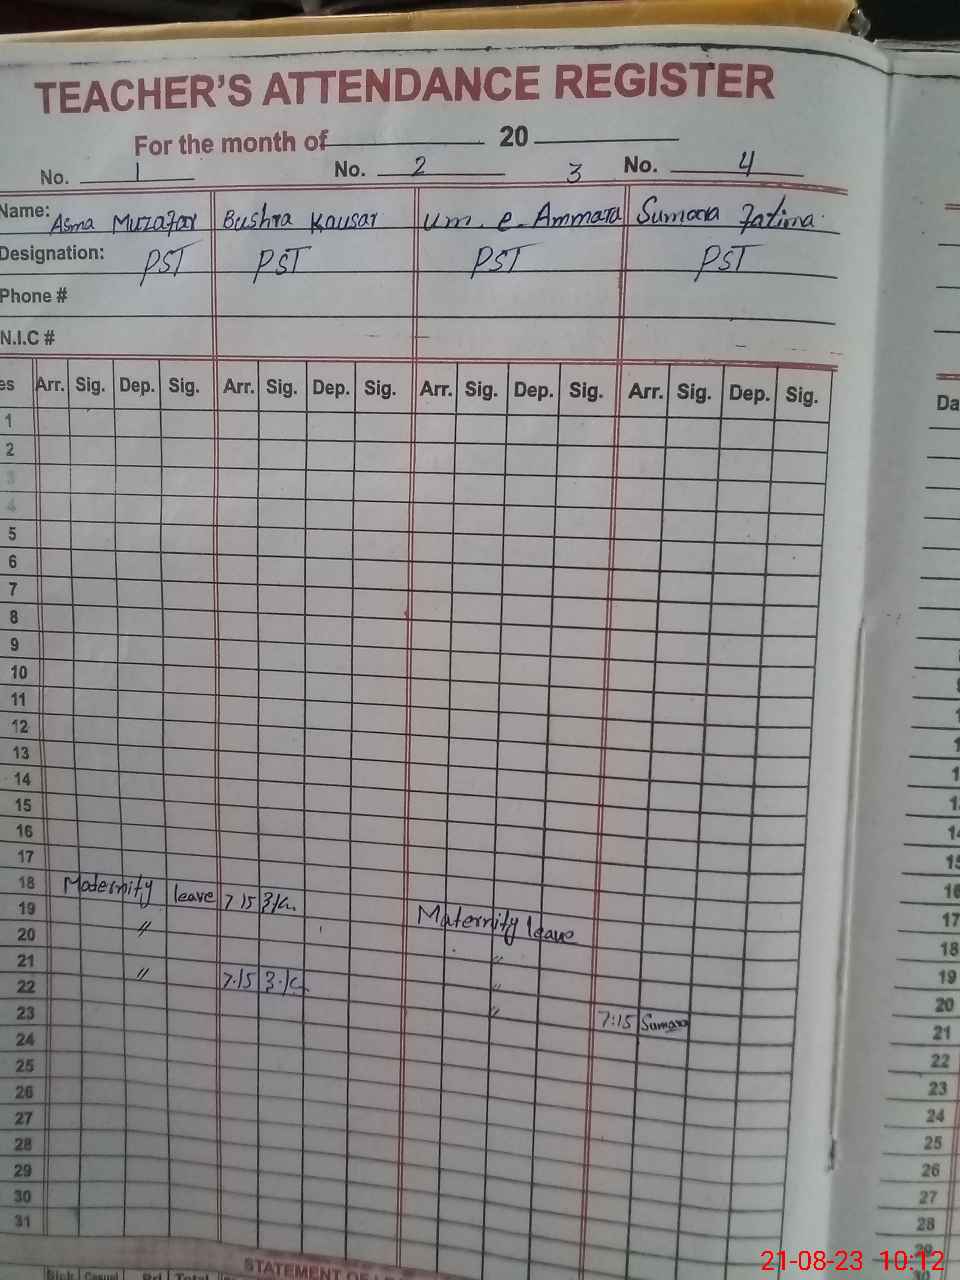 TEACHER'S ATTENDANCE REGISTER
For the month of 20
No. 1 No. 2 3 No. 4
Name: Asma Muzafar Bushra Kausar Um. e. Ammara Sumara Fatima
Designation: PST PST PST PST
Phone #
N.I.C #
es Arr. Sig. Dep. Sig. Arr. Sig. Dep. Sig. Arr. Sig. Dep. Sig. Arr. Sig. Dep. Sig.
Da
1
2
3
4
5
6
7
8
9
10
11
12
13
14
15
16
17
18 Maternity leave 7 15
19 Maternity leave
20 〃
21 〃
22 〃 7.15 〃
23 〃 7:15 Sumara
24
25
26
27
28
29
30
31
14
15
16
17
18
19
20
21
22
23
24
25
26
27
28
29
STATEMENT OF
Sick Casual Total
21-08-23 10:12